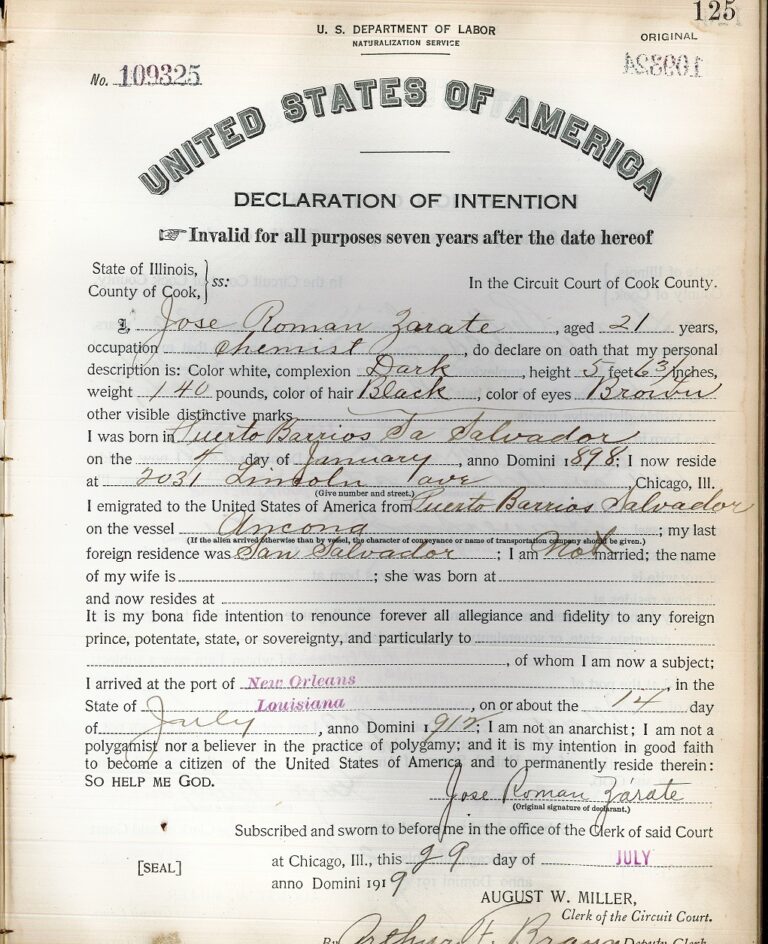 125
U. S. DEPARTMENT OF LABOR
NATURALIZATION SERVICE
ORIGINAL
No. 109325
UNITED STATES OF AMERICA
DECLARATION OF INTENTION
☞ Invalid for all purposes seven years after the date hereof
State of Illinois,
County of Cook, } ss:
In the Circuit Court of Cook County.
I, Jose Roman Zarate, aged 21 years,
occupation Chemist, do declare on oath that my personal
description is: Color white, complexion Dark, height 5 feet 6 3/4 inches,
weight 140 pounds, color of hair Black, color of eyes Brown
other visible distinctive marks
I was born in Puerto Barrios Sa Salvador
on the 4 day of January, anno Domini 1898; I now reside
at 2031 Lincoln ave, Chicago, Ill.
(Give number and street.)
I emigrated to the United States of America from Puerto Barrios Salvador
on the vessel Ancona; my last
(If the alien arrived otherwise than by vessel, the character of conveyance or name of transportation company should be given.)
foreign residence was San Salvador; I am Not married; the name
of my wife is; she was born at
and now resides at
It is my bona fide intention to renounce forever all allegiance and fidelity to any foreign
prince, potentate, state, or sovereignty, and particularly to
, of whom I am now a subject;
I arrived at the port of New Orleans, in the
State of Louisiana, on or about the 14 day
of, anno Domini 1912; I am not an anarchist; I am not a
polygamist nor a believer in the practice of polygamy; and it is my intention in good faith
to become a citizen of the United States of America and to permanently reside therein:
SO HELP ME GOD.
Jose Roman Zárate
(Original signature of declarant.)
Subscribed and sworn to before me in the office of the Clerk of said Court
[SEAL]
at Chicago, Ill., this 29 day of JULY
anno Domini 1919
AUGUST W. MILLER,
Clerk of the Circuit Court.
By Arthur F. Deputy Clerk